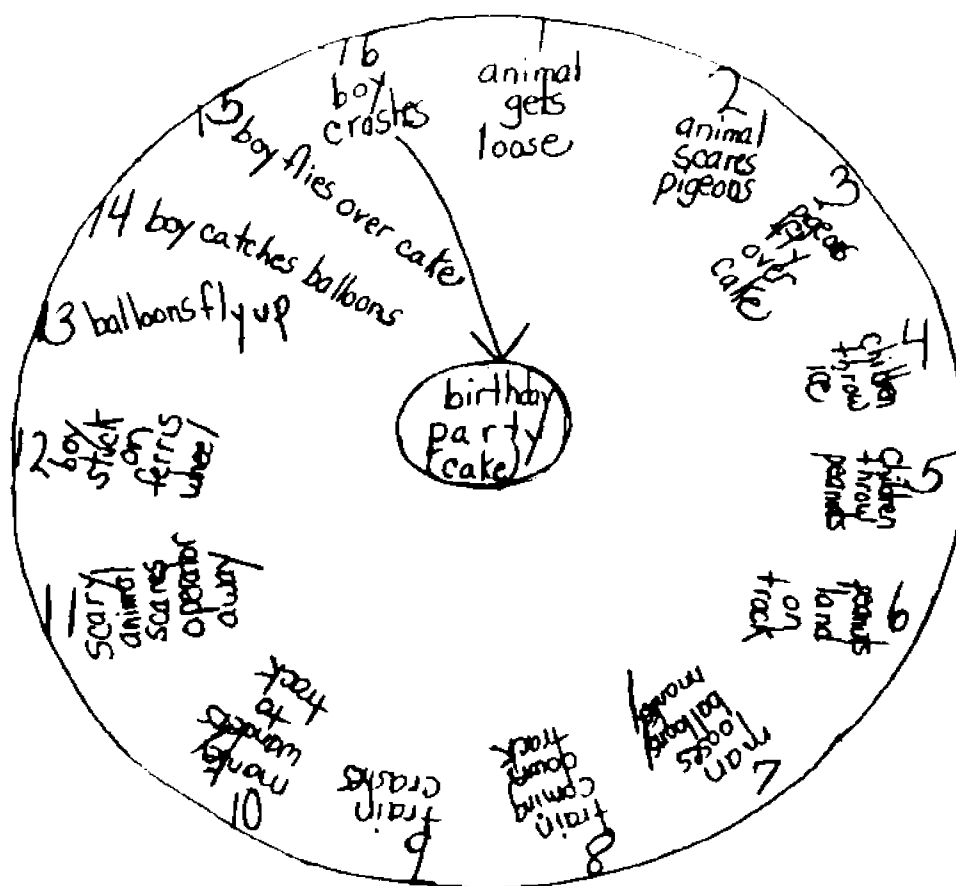 1
animal
gets
loose
2
animal
scares
pigeons
3
pigeons
fly
over
cake
4
children
throw
ice
5
children
throw
peanuts
6
peanuts
land
on
track
7
man
looses
balloons
monkey
8
train
coming
down
track
9
train
crashes
10
monkey
wanders
to
track
11
scary
animal
scares
operator
away
12
boy
stuck
on
ferris
wheel
13 balloons fly up
14 boy catches balloons
15 boy flies over cake
16
boy
crashes
birthday
party
(cake)